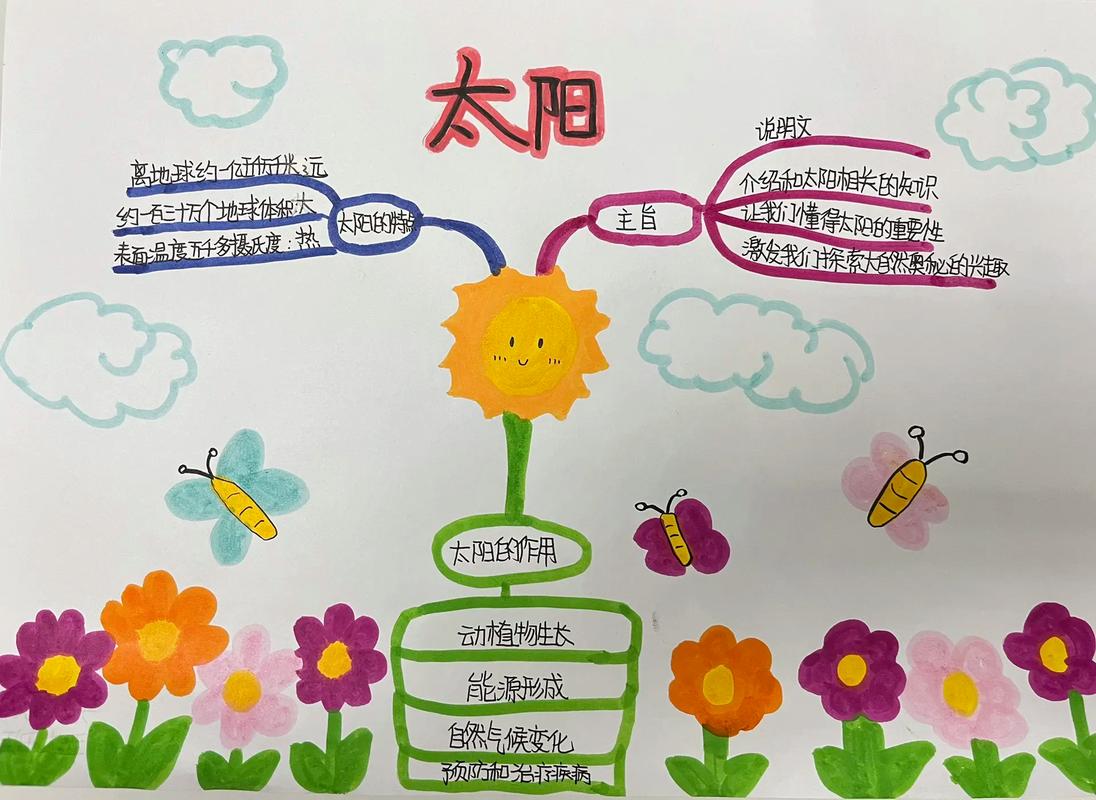 太阳
离地球约一亿五千万千米:远
约一百三十万个地球体积:大
表面温度五千多摄氏度:热
太阳的特点
主旨
说明文
介绍和太阳相关的知识
让我们懂得太阳的重要性
激发我们探索大自然奥秘的兴趣
太阳的作用
动植物生长
能源形成
自然气候变化
预防和治疗疾病